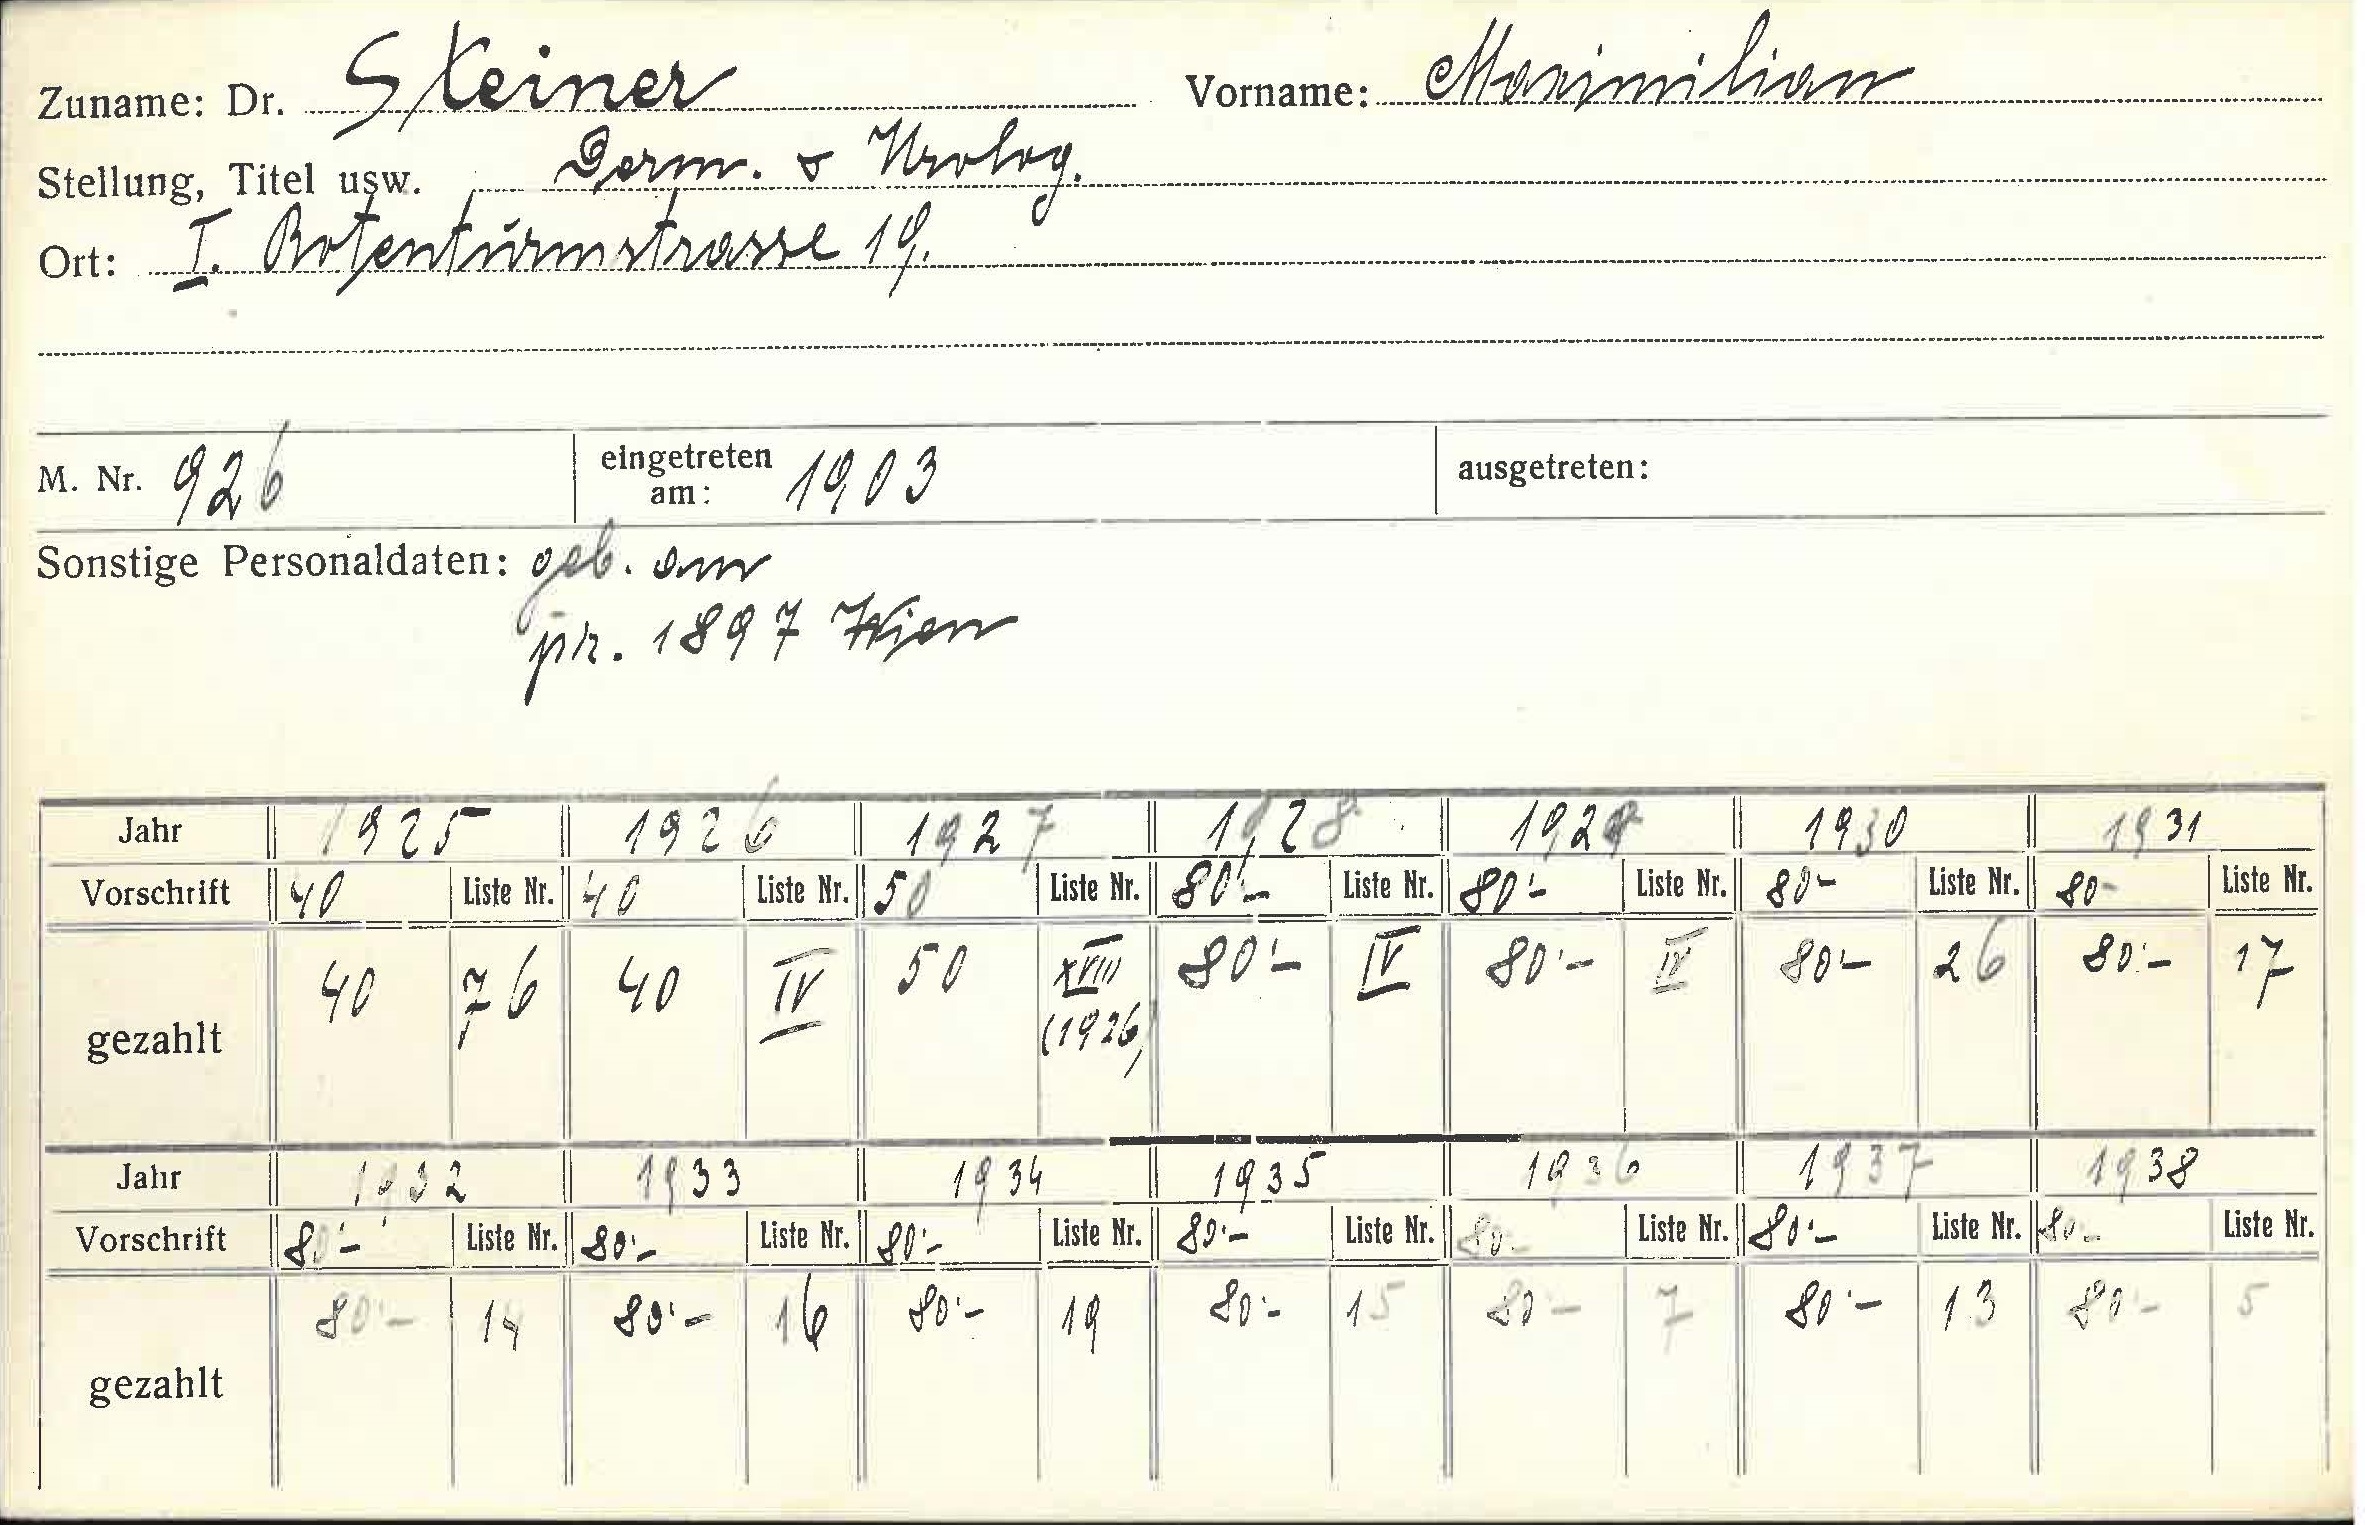 Zuname: Dr. Steiner Vorname: Maximilian
Stellung, Titel usw. Derm. & Urolog.
Ort: I. Rotenturmstrasse 19.
M. Nr. 926 eingetreten am: 1903 ausgetreten:
Sonstige Personaldaten: geb. am
pr. 1897 Wien
Jahr 1925 1926 1927 1928 1929 1930 1931
Vorschrift 40 Liste Nr. 40 Liste Nr. 50 Liste Nr. 80'- Liste Nr. 80'- Liste Nr. 80- Liste Nr. 80- Liste Nr.
gezahlt 40 76 40 IV 50 XVIII (1926) 80'- IV 80'- IV 80'- 26 80'- 17
Jahr 1932 1933 1934 1935 1936 1937 1938
Vorschrift 80'- Liste Nr. 80'- Liste Nr. 80'- Liste Nr. 80'- Liste Nr. 80.- Liste Nr. 80'- Liste Nr. 80.- Liste Nr.
gezahlt 80'- 14 80'- 16 80'- 19 80'- 15 80'- 7 80'- 13 80'- 5